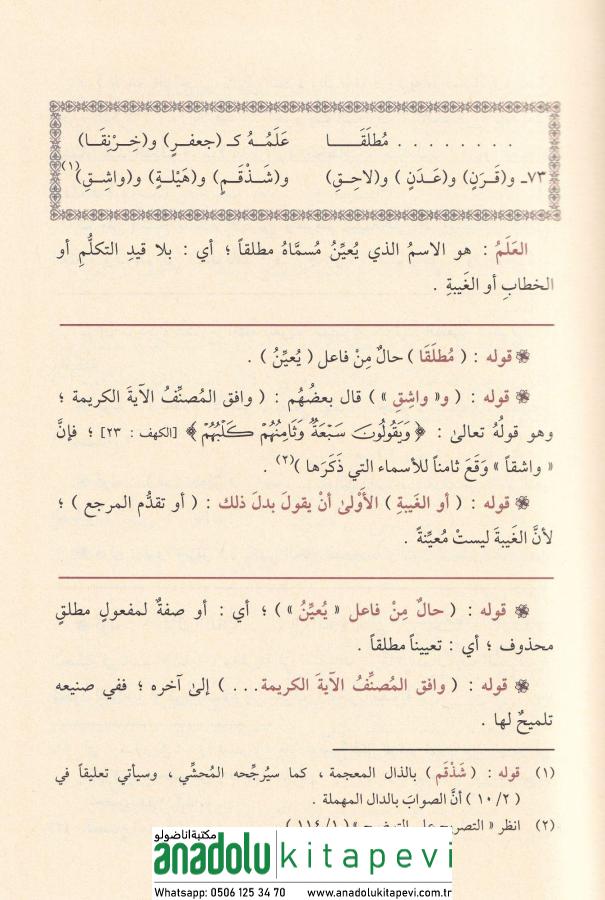 . . . . . . . . مُطلَقَـــا عَلَمُـهُ كـ (جعفـرٍ) و(خِـرْنِقَـا)
٧٣ـ و(قَـرَنٍ) و(عَـدَنٍ ) و(لاحِـقِ) و(شَـذْقَـمٍ) و(هَيْلـةٍ) و(واشِـقِ)(١)
العَلَمُ : هو الاسمُ الذي يُعيِّنُ مُسمَّاهُ مطلقاً ؛ أي : بلا قيدِ التكلُّمِ أو
الخطابِ أو الغَيبةِ .
قوله : ( مُطلَقَا ) حالٌ مِنْ فاعل ( يُعيِّنُ ) .
قوله : ( و« واشِقِ » ) قال بعضُهُم : ( وافق المُصنِّفُ الآيةَ الكريمة ؛
وهو قولُهُ تعالىٰ : ﴿ وَيَقُولُونَ سَبْعَةٌ وَثَامِنُهُمْ كَلْبُهُمْ ﴾ [الكهف : ٢٣] ؛ فإنَّ
« واشقاً » وَقَعَ ثامناً للأسماء التي ذَكَرَها )(٢) .
قوله : ( أو الغَيبةِ ) الأَوْلىٰ أنْ يقولَ بدلَ ذلك : ( أو تقدُّم المرجع ) ؛
لأنَّ الغَيبةَ ليستْ مُعيِّنةً .
قوله : ( حالٌ مِنْ فاعل « يُعيِّنُ » ) ؛ أي : أو صفةٌ لمفعولٍ مطلقٍ
محذوف ؛ أي : تعييناً مطلقاً .
قوله : ( وافق المُصنِّفُ الآيةَ الكريمة... ) إلىٰ آخره ؛ ففي صنيعه
تلميحٌ لها .
(١) قوله : ( شَذْقَم ) بالذال المعجمة ، كما سيُرجِّحه المُحشِّي ، وسيأتي تعليقاً في
( ١٠/٢ ) أنَّ الصوابَ بالدال المهملة .
(٢) انظر « التصريح على التوضيح » ( ١١٤/١ )
مكتبة اناضولو
anadolu kitapevi
Whatsapp: 0506 125 34 70 www.anadolukitapevi.com.tr